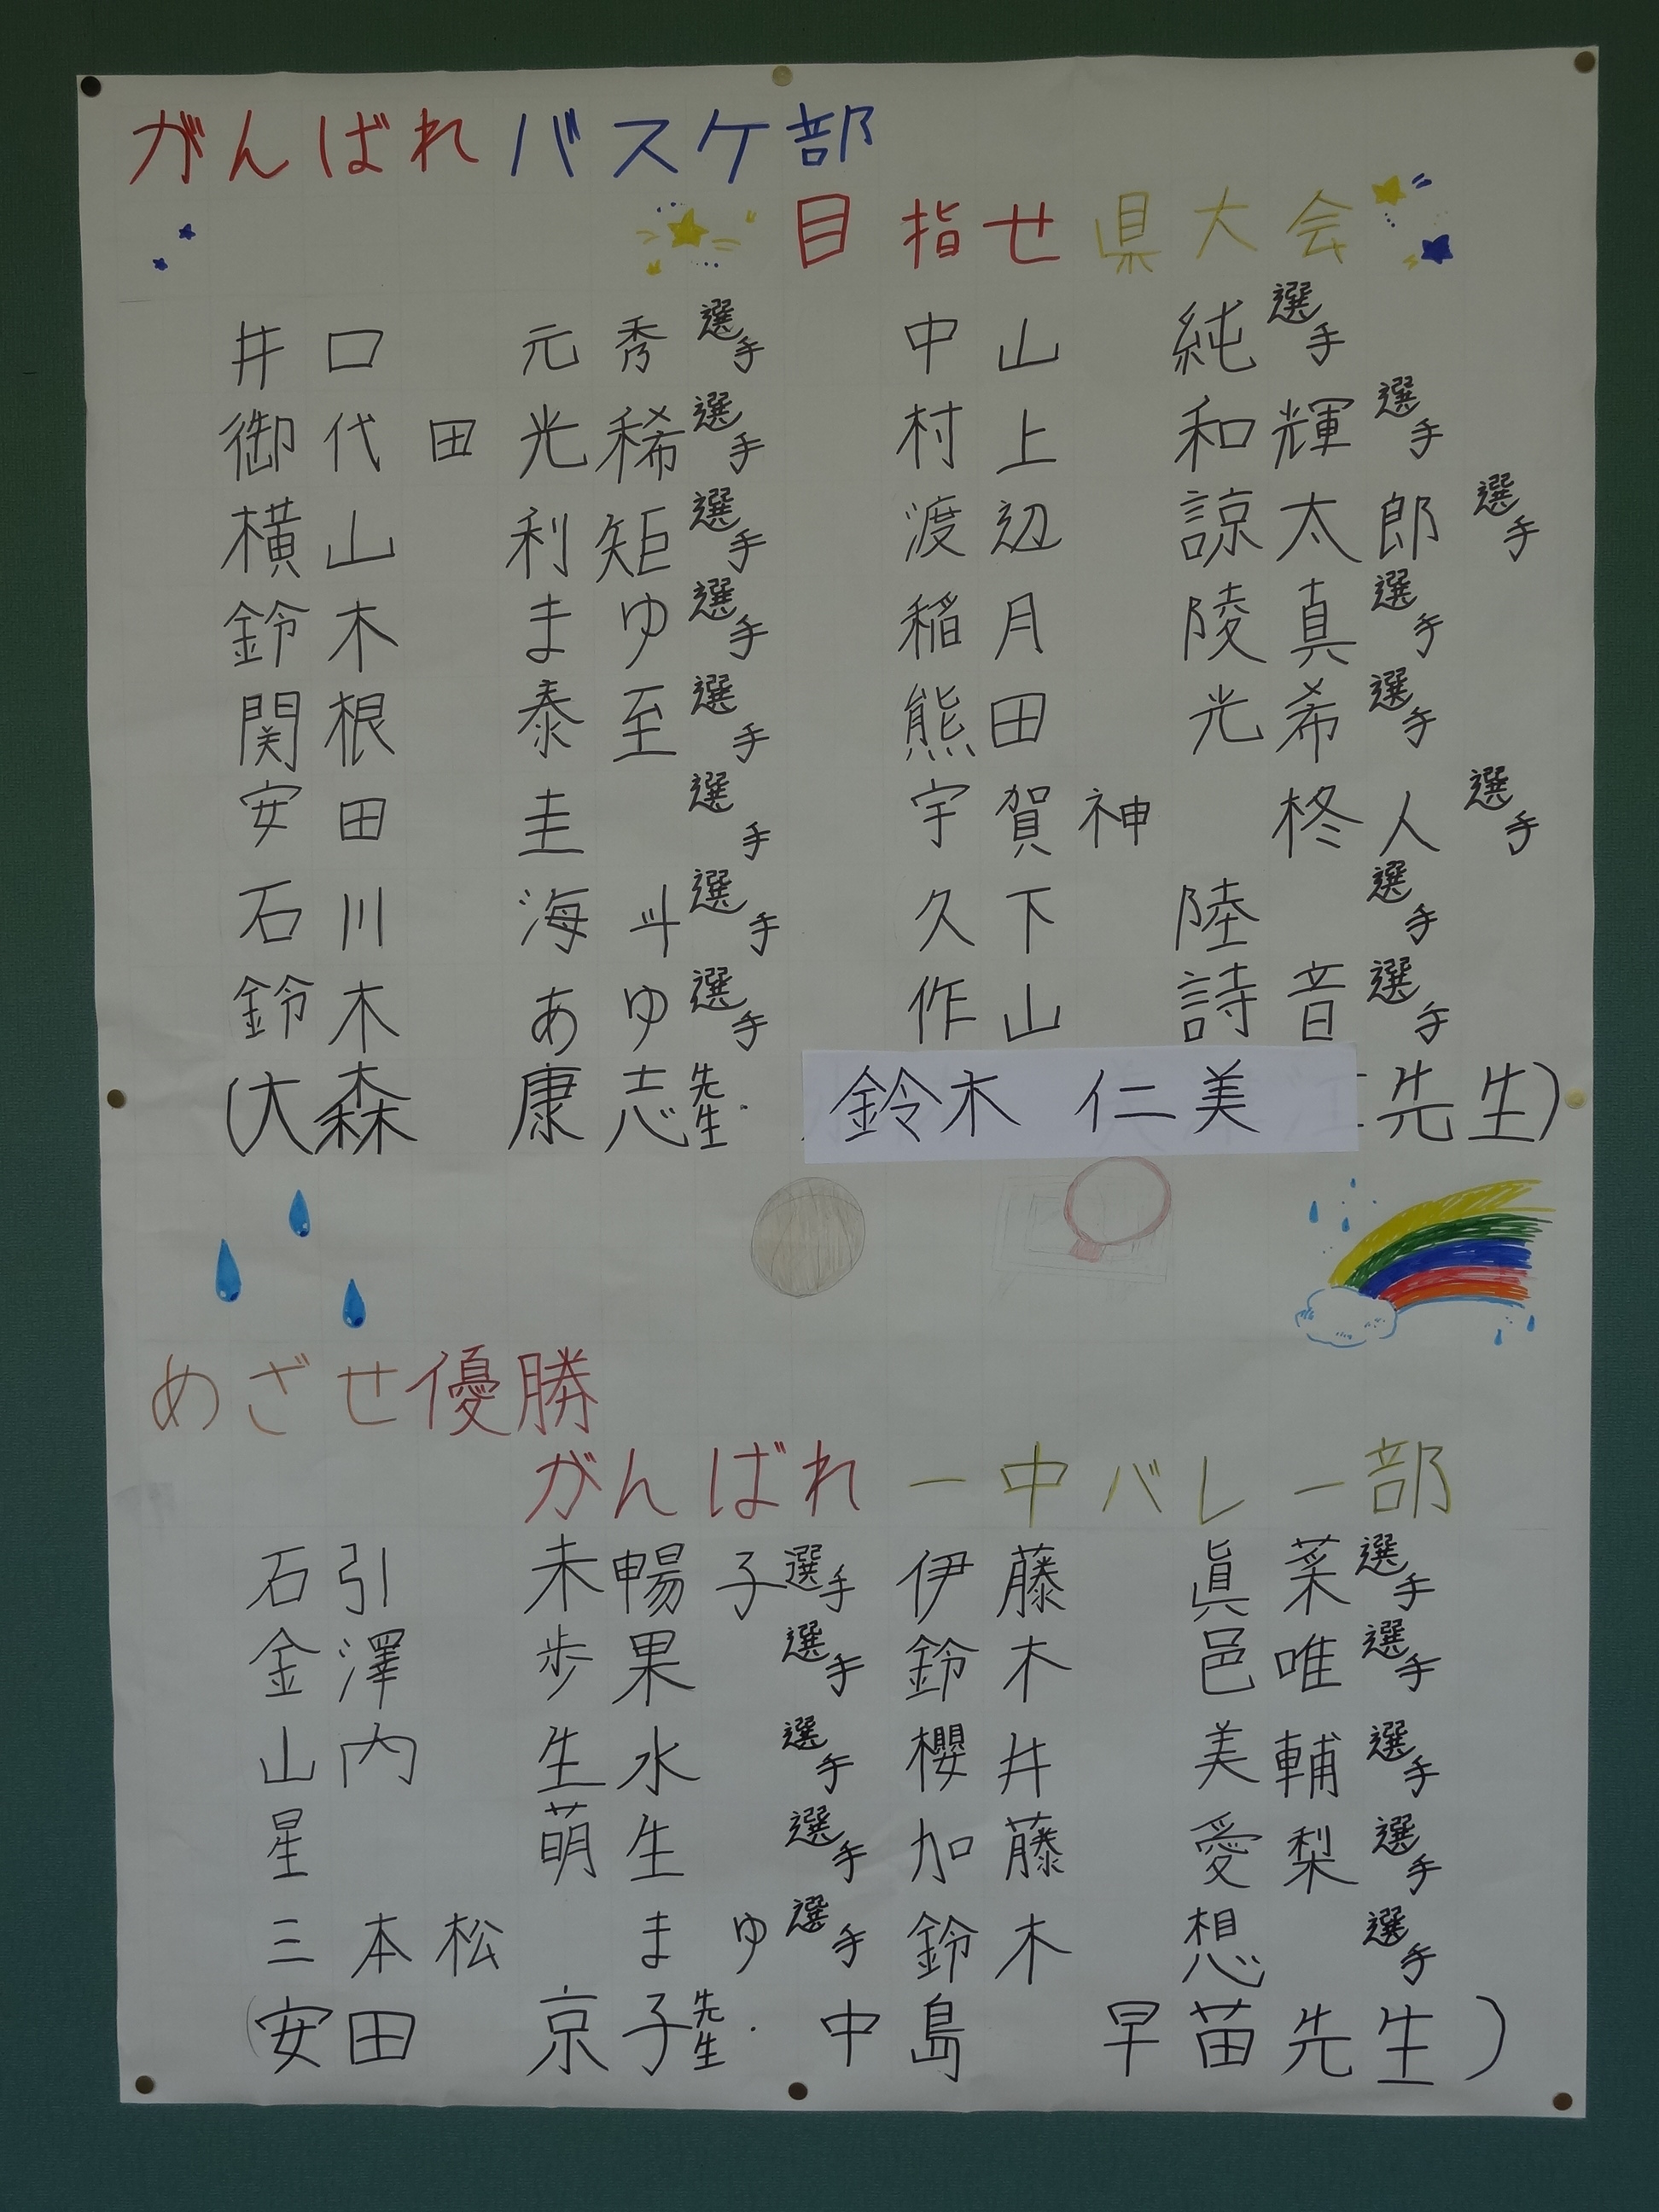 がんばれバスケ部
目指せ県大会
井口 元秀選手 中山 純選手
御代田 光稀選手 村上 和輝選手
横山 利矩選手 渡辺 諒太郎選手
鈴木 まゆ選手 稲月 陵真選手
関根 泰至選手 熊田 光希選手
安田 圭選手 宇賀神 柊人選手
石川 海斗選手 久下 陸選手
鈴木 あゆ選手 作山 詩音選手
(大森 康志先生・鈴木 仁美先生)
めざせ優勝
がんばれ一中バレー部
石引 未暢子選手 伊藤 眞菜選手
金澤 歩果選手 鈴木 邑唯選手
山内 生水選手 櫻井 美輔選手
星 萌生選手 加藤 愛梨選手
三本松 まゆ選手 鈴木 想選手
(安田 京子先生・中島 早苗先生)